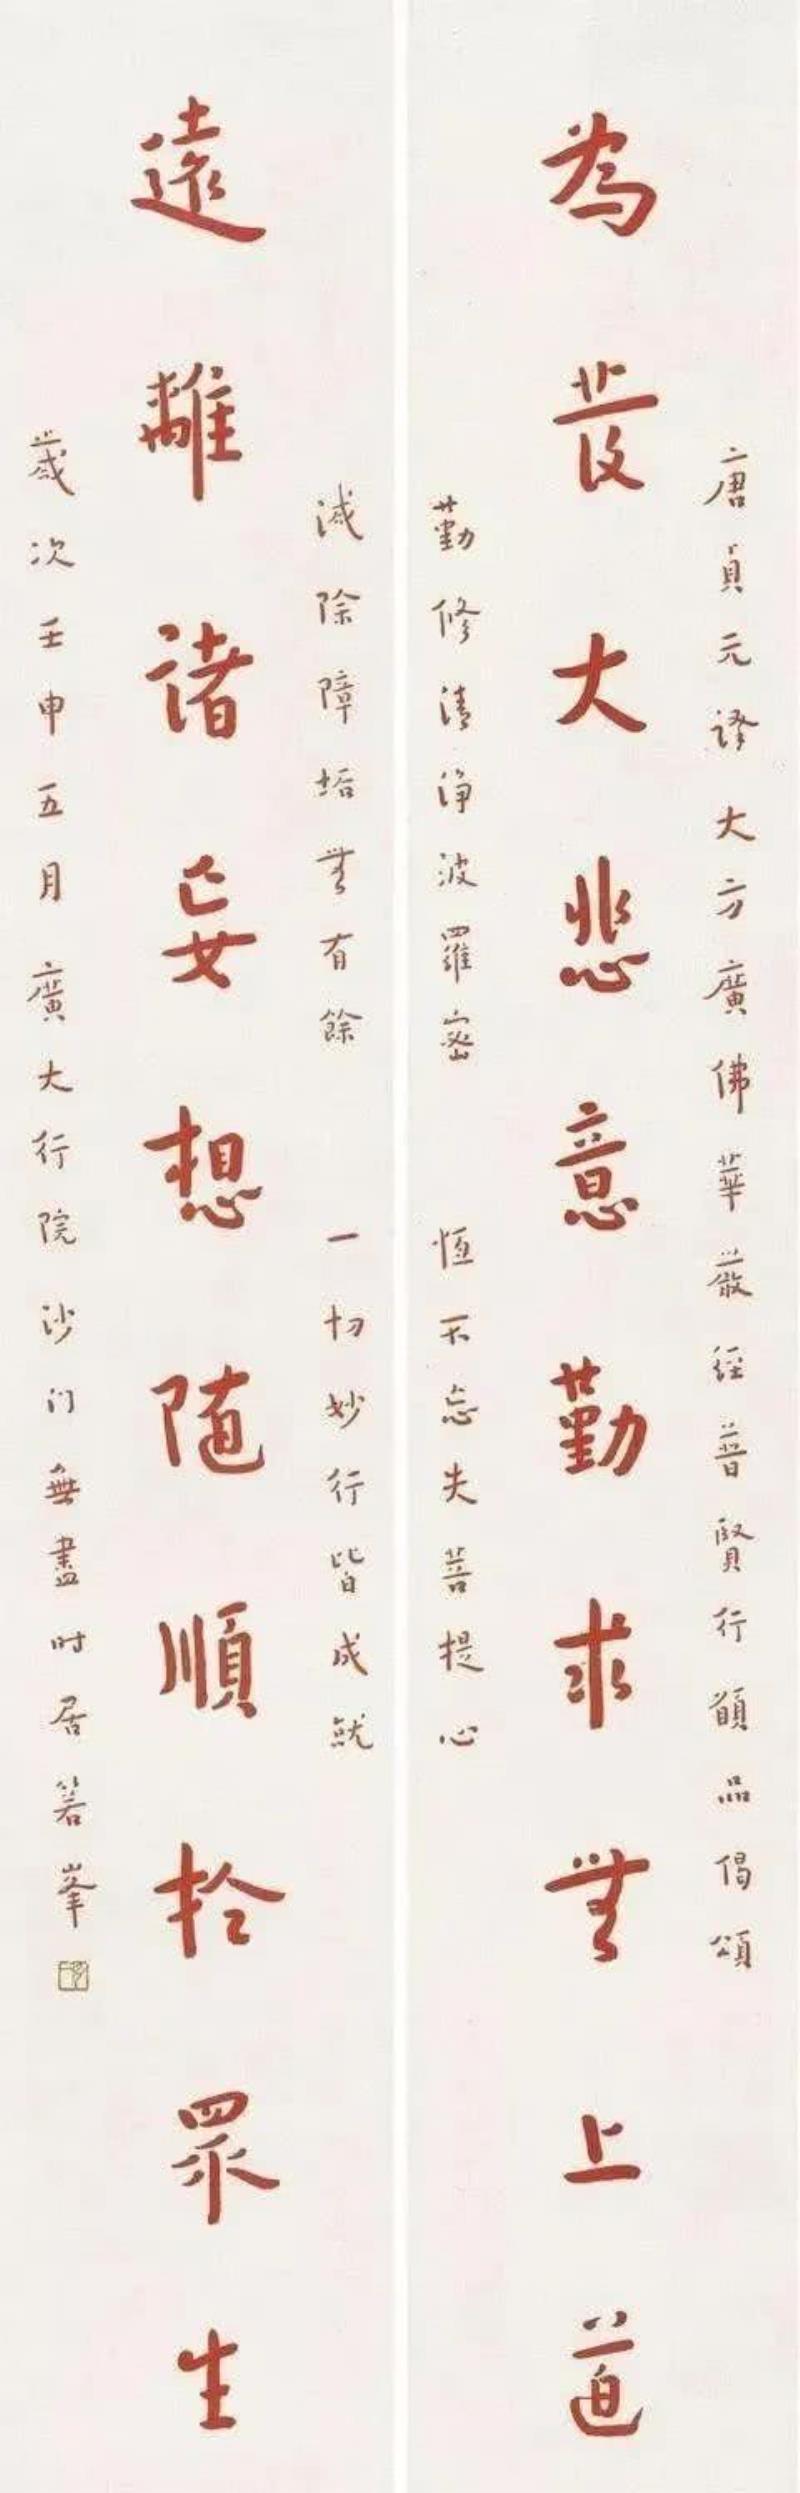 唐貞元譯大方廣佛華嚴經普賢行願品偈頌
為發大悲意勤求無上道
勤修清淨波羅密 恆不忘失菩提心
滅除障垢無有餘 一切妙行皆成就
遠離諸妄想随順於眾生
歲次壬申五月廣大行院沙门無盡時居箬峯